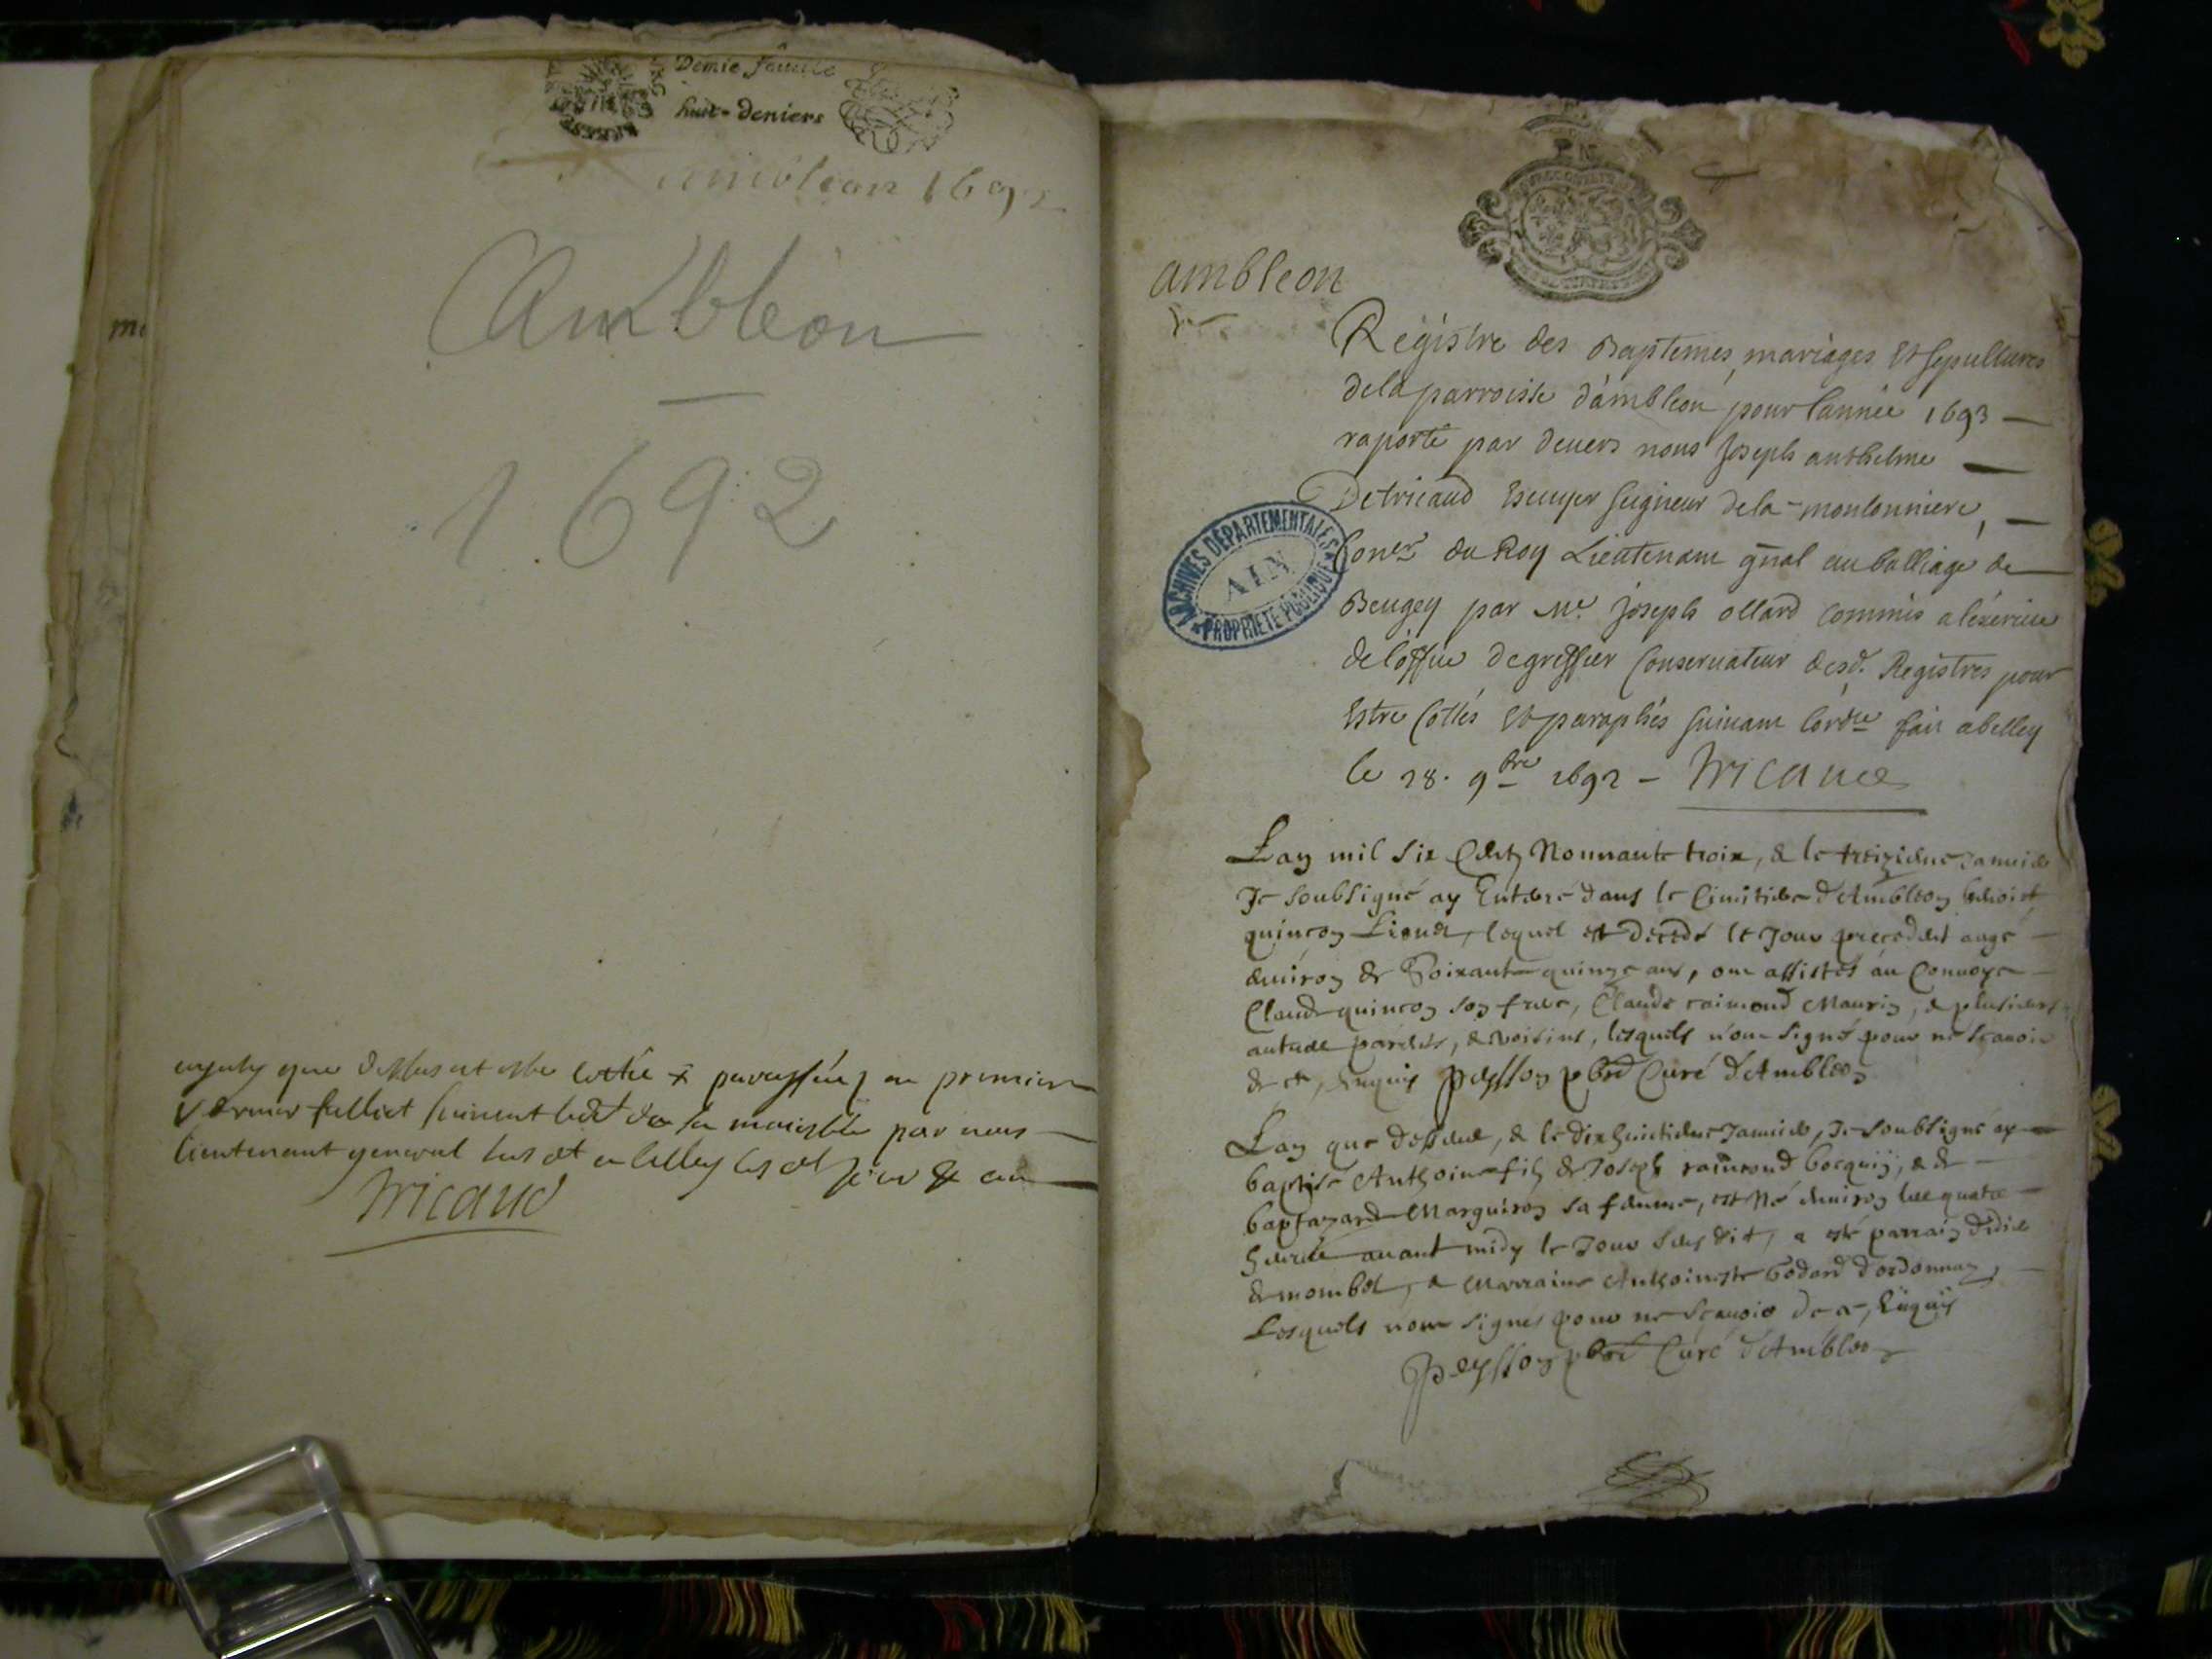 Demie feuille
huit-deniers
ambleon 1692
Ambléon
1692
lieutenant general
Tricaud
ambleon
Registre des Baptemes, mariages Et sepultures
de la parroisse d'ambléon pour l'année 1693
raporté par devers nous Joseph anthelme
De tricaud Escuyer seigneur de la-montonniere,
Coner du Roy Lieutenant gñal au balliage de
Beugey par Me. Joseph ollard commis a l'exercice
de l'office de greffier Conservateur desd. Registres pour
Estre Cottés Et paraphés suivant l'ordre fait a belley
le 28. 9bre 1692 - Tricaud
ARCHIVES DÉPARTEMENTALES
AIN
PROPRIÉTÉ PUBLIQUE
Lan mil six Cents Nonnante troix, & le treizieme Januier
Je soubsigné ay Enterré dans le Cimitiere d'Ambleon benoist
quincon Lionet, lequel est decedé le Jour precedent augé
environ de Soixante quinze ans, ont assistés au Convoye
Claude quincon son frere, Claude raimond Maurin, & plusieurs
autres parents, & voisins, lesquels n'ont signé pour ne sçauoir
de ce, enquis Peysson pbre Curé d'Ambleon
Lan que dessus, & le dix huictieme Januier, Je soubsigné ay
baptisé Anthoine fils de Joseph raimond bocquin, & de
sa femme, est né environ les quatre
heures auant midy le Jour susdit, a esté parrain
& Marraine Anthoinette bodard d'ordonnaz,
Lesquels n'ont signés pour ne sçauoir de ce, Enquis
Peysson pbre Curé d'Ambleon